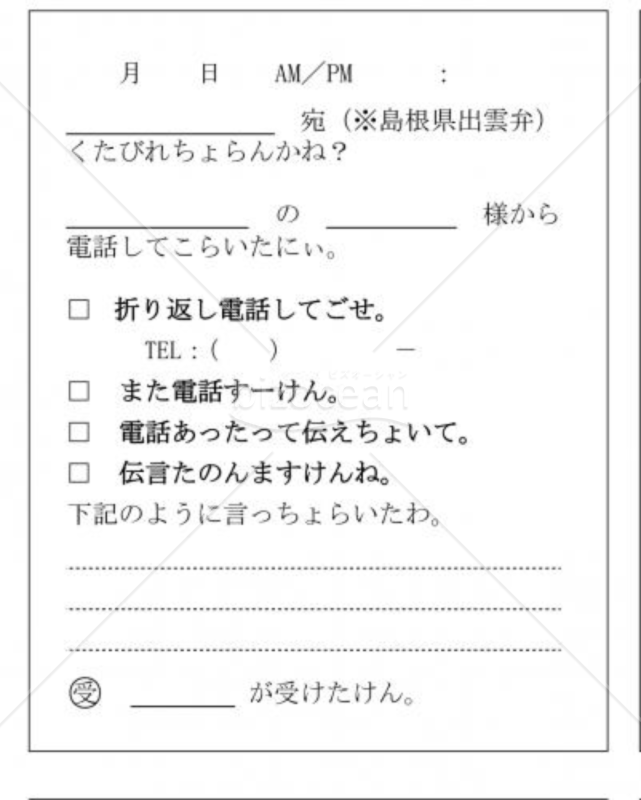 月 日 AM／PM :
宛（※島根県出雲弁）
くたびれちょらんかね？
の 様から
電話してこらいたにぃ。
□ 折り返し電話してごせ。
TEL：( ) －
□ また電話すーけん。
ビズオーシャン
bizocean
□ 電話あったって伝えちょいて。
□ 伝言たのんますけんね。
下記のように言っちょらいたわ。
㊌受 が受けたけん。